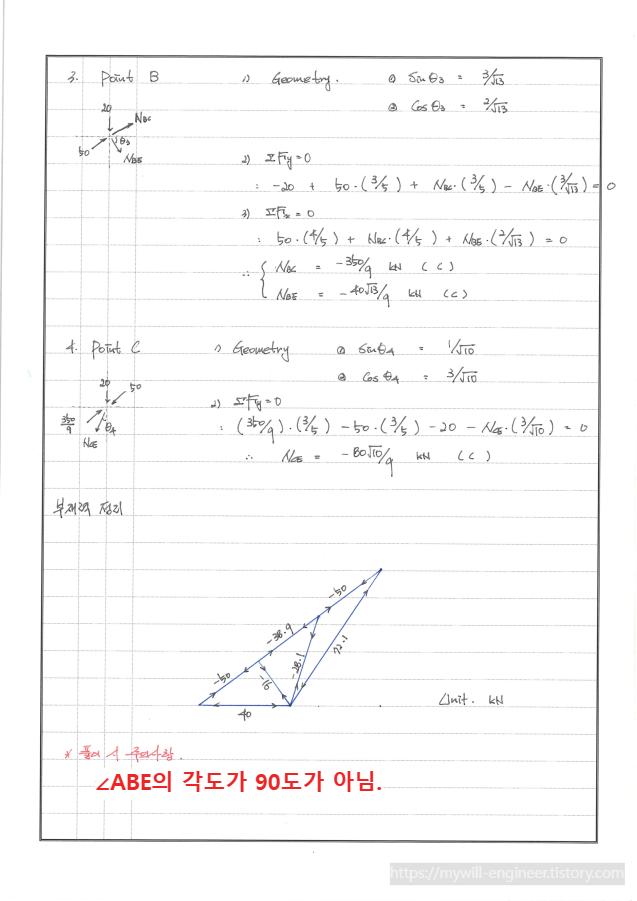 3. Point B 1) Geometry. ① Sinθ3 = 3/√13
② Cosθ3 = 2/√13
20
NBC
θ3
50
NBE
2) ΣFy=0
: -20 + 50·(3/5) + NBC·(3/5) - NBE·(3/√13) = 0
3) ΣFx = 0
: 50·(4/5) + NBC·(4/5) + NBE·(2/√13) = 0
∴ { NBC = -350/9 kN (C)
NBE = -40√13/9 kN (C)
4. Point C 1) Geometry ① Sinθ4 = 1/√10
② Cosθ4 = 3/√10
20 50
350/9
θ4
NCE
2) ΣFy=0
: (350/9)·(3/5) - 50·(3/5) - 20 - NCE·(3/√10) = 0
∴ NCE = -80√10/9 kN (C)
부재력 정리
-50
-38.9
-50
72.1
-28.1
-16
40
Unit. kN
* 풀이 시 주의사항.
∠ABE의 각도가 90도가 아님.
https://mywill-engineer.tistory.com